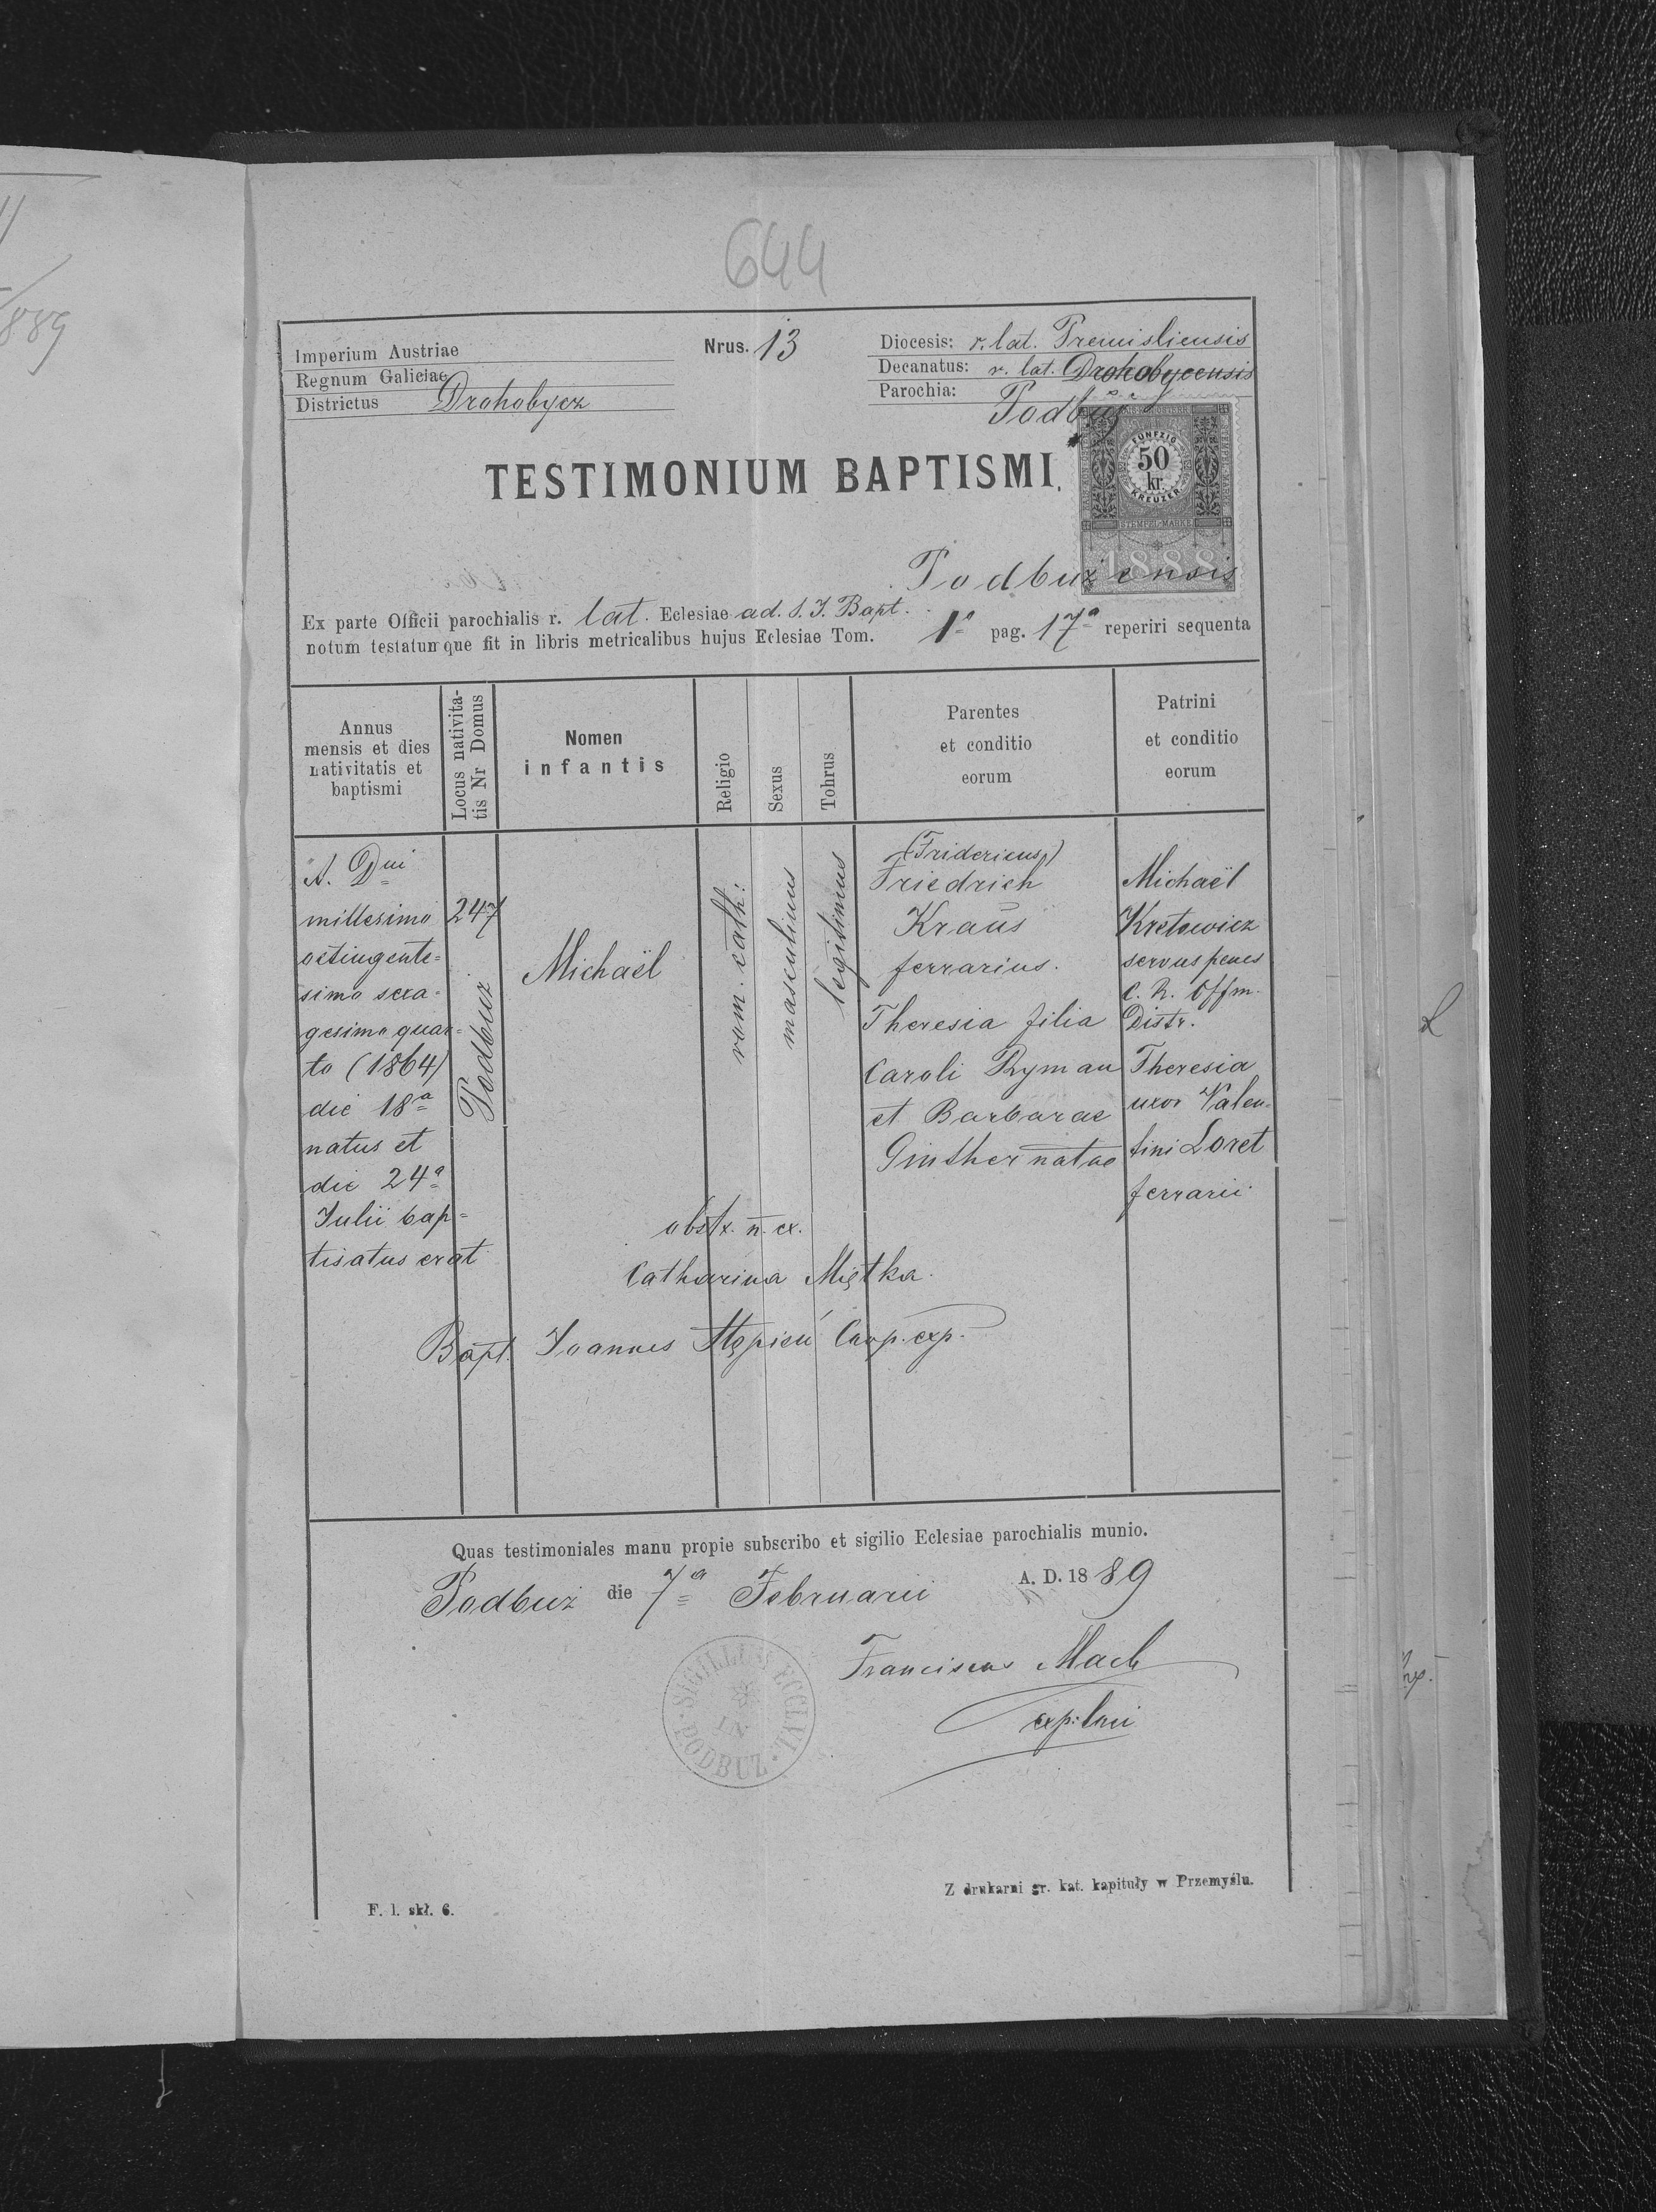 644
889
Imperium Austriae
Regnum Galiciae
Districtus Drohobycz
Nrus. 13
Diocesis: r. lat. Premisliensis
Decanatus: r. lat. Drohobycensis
Parochia: Podbuż
FÜNFZIG
50
kr.
KREUZER
STEMPEL-MARKE
1888
TESTIMONIUM BAPTISMI.
Podbużensis
Ex parte Officii parochialis r. lat. Eclesiae ad. S. J. Bapt.
notum testatumque fit in libris metricalibus hujus Eclesiae Tom. 1ª pag. 17ª reperiri sequenta
Annus
mensis et dies
nativitatis et
baptismi
Locus nativita-
tis Nr Domus
Nomen
infantis
Religio
Sexus
Tohrus
Parentes
et conditio
eorum
Patrini
et conditio
eorum
A. Dni
millesimo
octingente=
simo sexa=
gesimo quar=
to (1864)
die 18ª
natus et
die 24ª
Julii bap=
tisatus erat
247
Podbuż
Michaël
rom. cath:
masculinus
legitimus
(Fridericus)
Friedrich
Kraus
ferrarius.
Theresia filia
Caroli Ryman
et Barbarae
Ginther natae
Michaël
Kretowicz
servus penes
C. R. Offm.
Distr.
Theresia
uxor Valen=
tini Loret
ferrarii
obstx. n. ex.
Catharina Miętka.
Bapt. Joannes Stępień Coop. exp.
Quas testimoniales manu propie subscribo et sigilio Eclesiae parochialis munio.
Podbuż die 7ª Februarii A. D. 1889
Franciscus Mach
SIGILLUM ECCL.
IN
PODBUZ
Z drukarni gr. kat. kapituły w Przemyślu.
F. l. skł. 6.